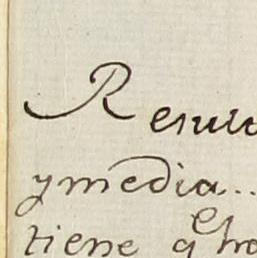 Resul
y media..
tiene q